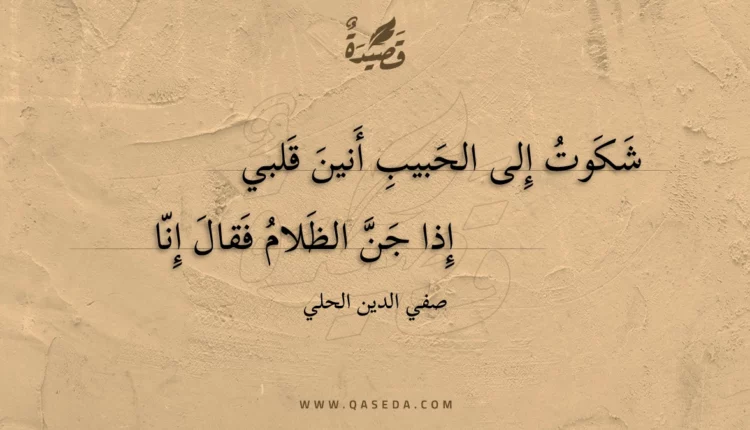 قَصِيدَةٌ
شَكَوتُ إِلى الحَبيبِ أَنينَ قَلبي
إِذا جَنَّ الظَلامُ فَقالَ إِنّا
صفي الدين الحلي
WWW.QASEDA.COM